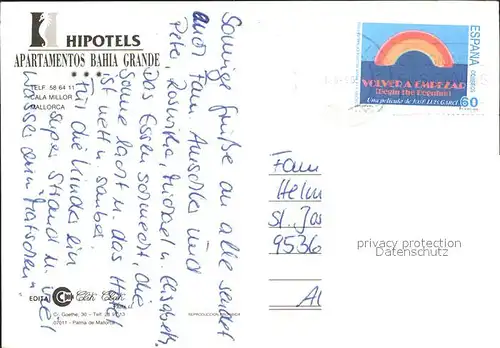 HIPOTELS
APARTAMENTOS BAHIA GRANDE
TELF. 58 64 11
CALA MILLOR
MALLORCA
Sonnige Grüße an alle sendet
euch Fam. und
Pete, Roswitha, Michael u. Elisabeth.
Das Essen schmeckt, die
Sonne lacht u. das Hotel
ist nett u. sauber.
Für die Kinder ein
super Strand u. viel
Wasser zum
EDITA
C/. Goethe, 30 - Telf. 28
07011 - Palma de Mallorca
REPRODUCCION
ESPAÑA
CORREOS
VOLVER A EMPEZAR
(Begin the Beguine)
Una película de JOSÉ LUIS GARCI
60
Fam
Helm
St. Jos
9536
privacy protection
Datenschutz